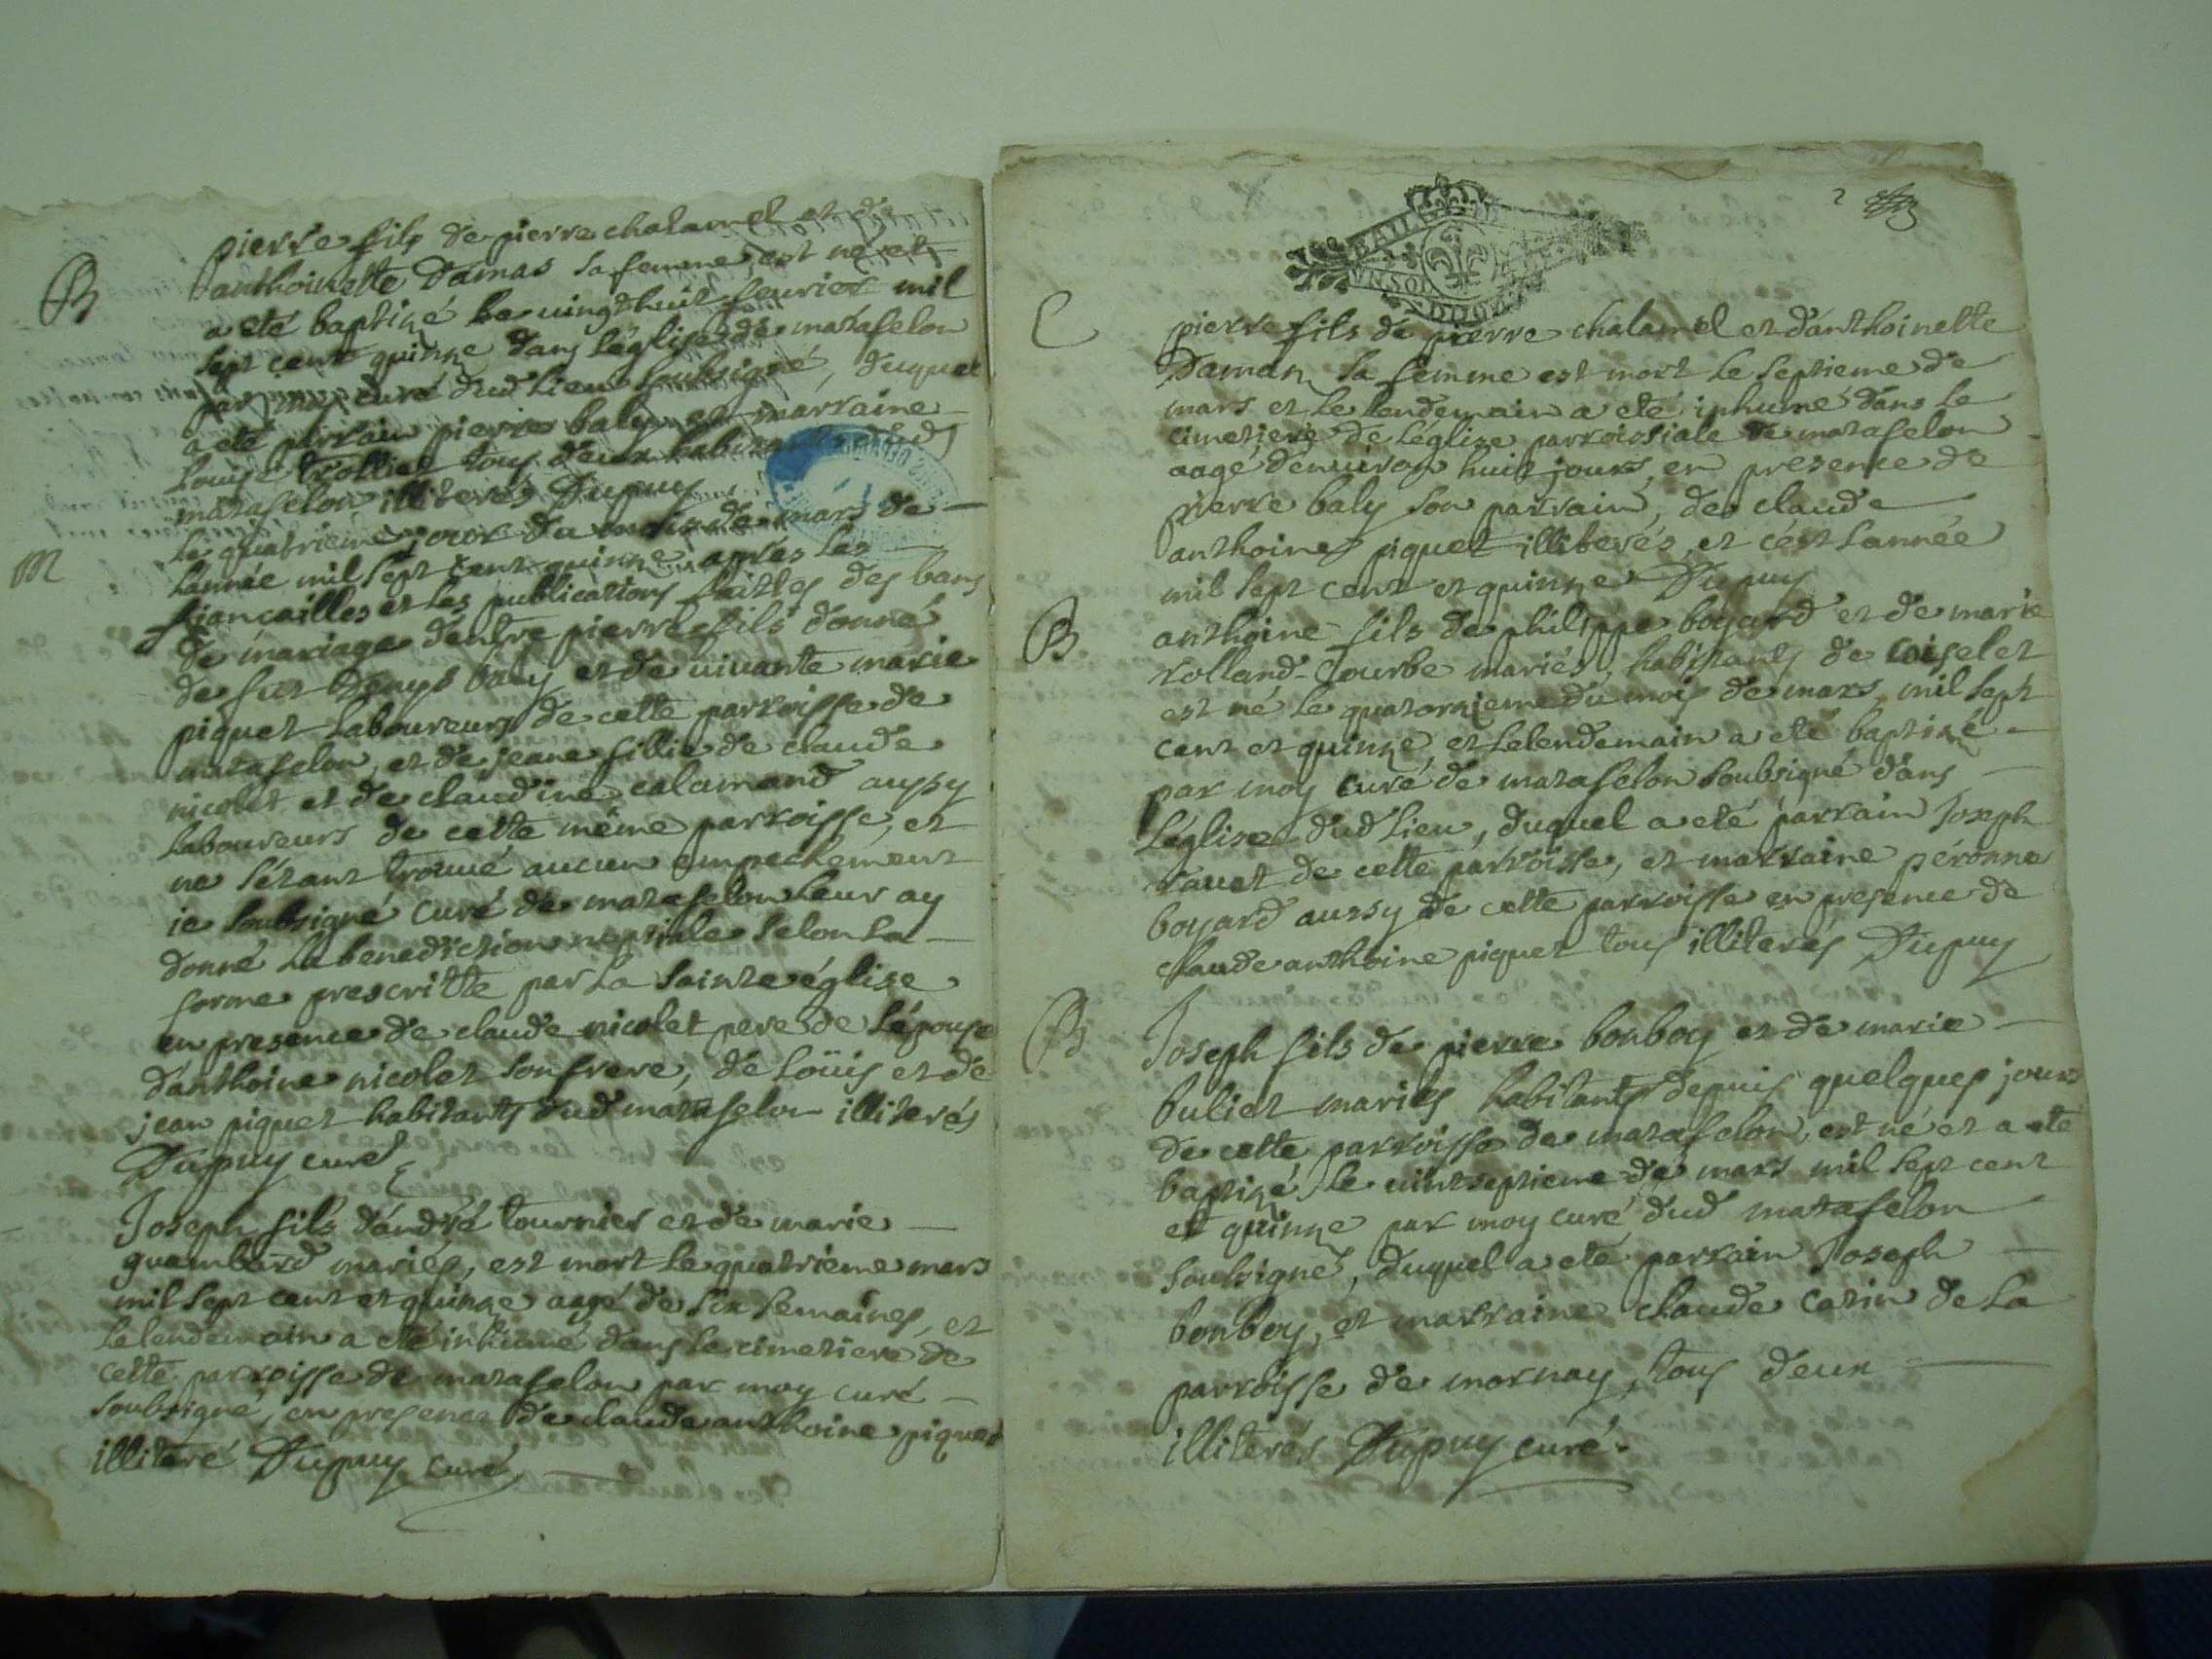 B
pierre fils de pierre chalamel et de
anthoinette Damas sa femme est né et
a eté baptizé le uingt huit feurier mil
sept cent quinze dans l'église de matafelon
par moy curé dud lieu soubsigné, duquel
a eté parrain pierre baly et marraine
Louise trollier tous deux habitants dud
matafelon illiterés Dupuy
M
Le quatrieme jour du mois de mars de
l'année mil sept cent quinze apres les
fiancailles et les publications faittes des bans
de mariage d'entre pierre fils donné
de fut Denys baly et de uiuante marie
piquet laboureurs de cette parroisse de
matafelon, et de jeane fillie de claude
nicolet et de claudine calamand aussy
laboureurs de cette même parroisse, et
ne s'étant trouué aucun empechement
ie soubsigné curé de matafelon leur ay
donné la benediction nuptiale selon la
forme prescritte par la sainte église
en presence de claude nicolet pere de l'épouse
d'anthoine nicolet son frere, de Loüis et de
jean piquet habitants dud matafelon illiterés
Dupuy curé
Joseph fils d'andré tournier et de marie
guambard mariés, est mort le quatrieme mars
mil sept cent et quinze aagé de six semaines, et
le lendemain a eté inhumé dans le cimetiere de
cette parroisse de matafelon par moy curé
soubsigné, en presence de claude anthoine piquet
illiteré Dupuy curé
2
VN SOL
C
pierre fils de pierre chalamel et d'anthoinette
Daman sa femme est mort le septieme de
mars et le lendemain a eté inhumé dans le
cimetiere de l'église parroissiale de matafelon
aagé d'enuiron huit jours, en presence de
pierre baly son parrain, de claude
anthoine piquet illiterés, et c'est l'année
mil sept cent et quinze Dupuy
B
anthoine fils de philippe boyard et de marie
rolland-Courbe mariés, habitants de coiselet
est né le quatorzieme du mois de mars mil sept
cent et quinze, et le lendemain a eté baptizé
par moy curé de matafelon soubsigné dans
l'église dud lieu, duquel a eté parrain Joseph
rauet de cette parroisse, et marraine péronne
boyard aussy de cette parroisse en presence de
claude anthoine piquet tous illiterés Dupuy
B
Joseph fils de pierre bonboy et de marie
buliet mariés habitants depuis quelques jours
de cette parroisse de matafelon, est né et a eté
baptizé le uintseptieme de mars mil sept cent
et quinze par moy curé dud matafelon
soubsigné, duquel a eté parrain Joseph
bonboy, et marraine claude catin de la
parroisse de mornay, tous deux
illiterés Dupuy curé.